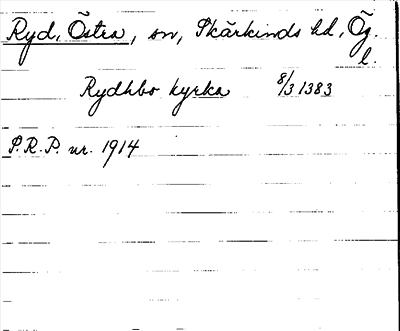 Ryd, Östra, sn, Skärkinds hd, Ög.
l.
Rydhbo kyrka 8/3 1383
P.R.P. nr. 1914